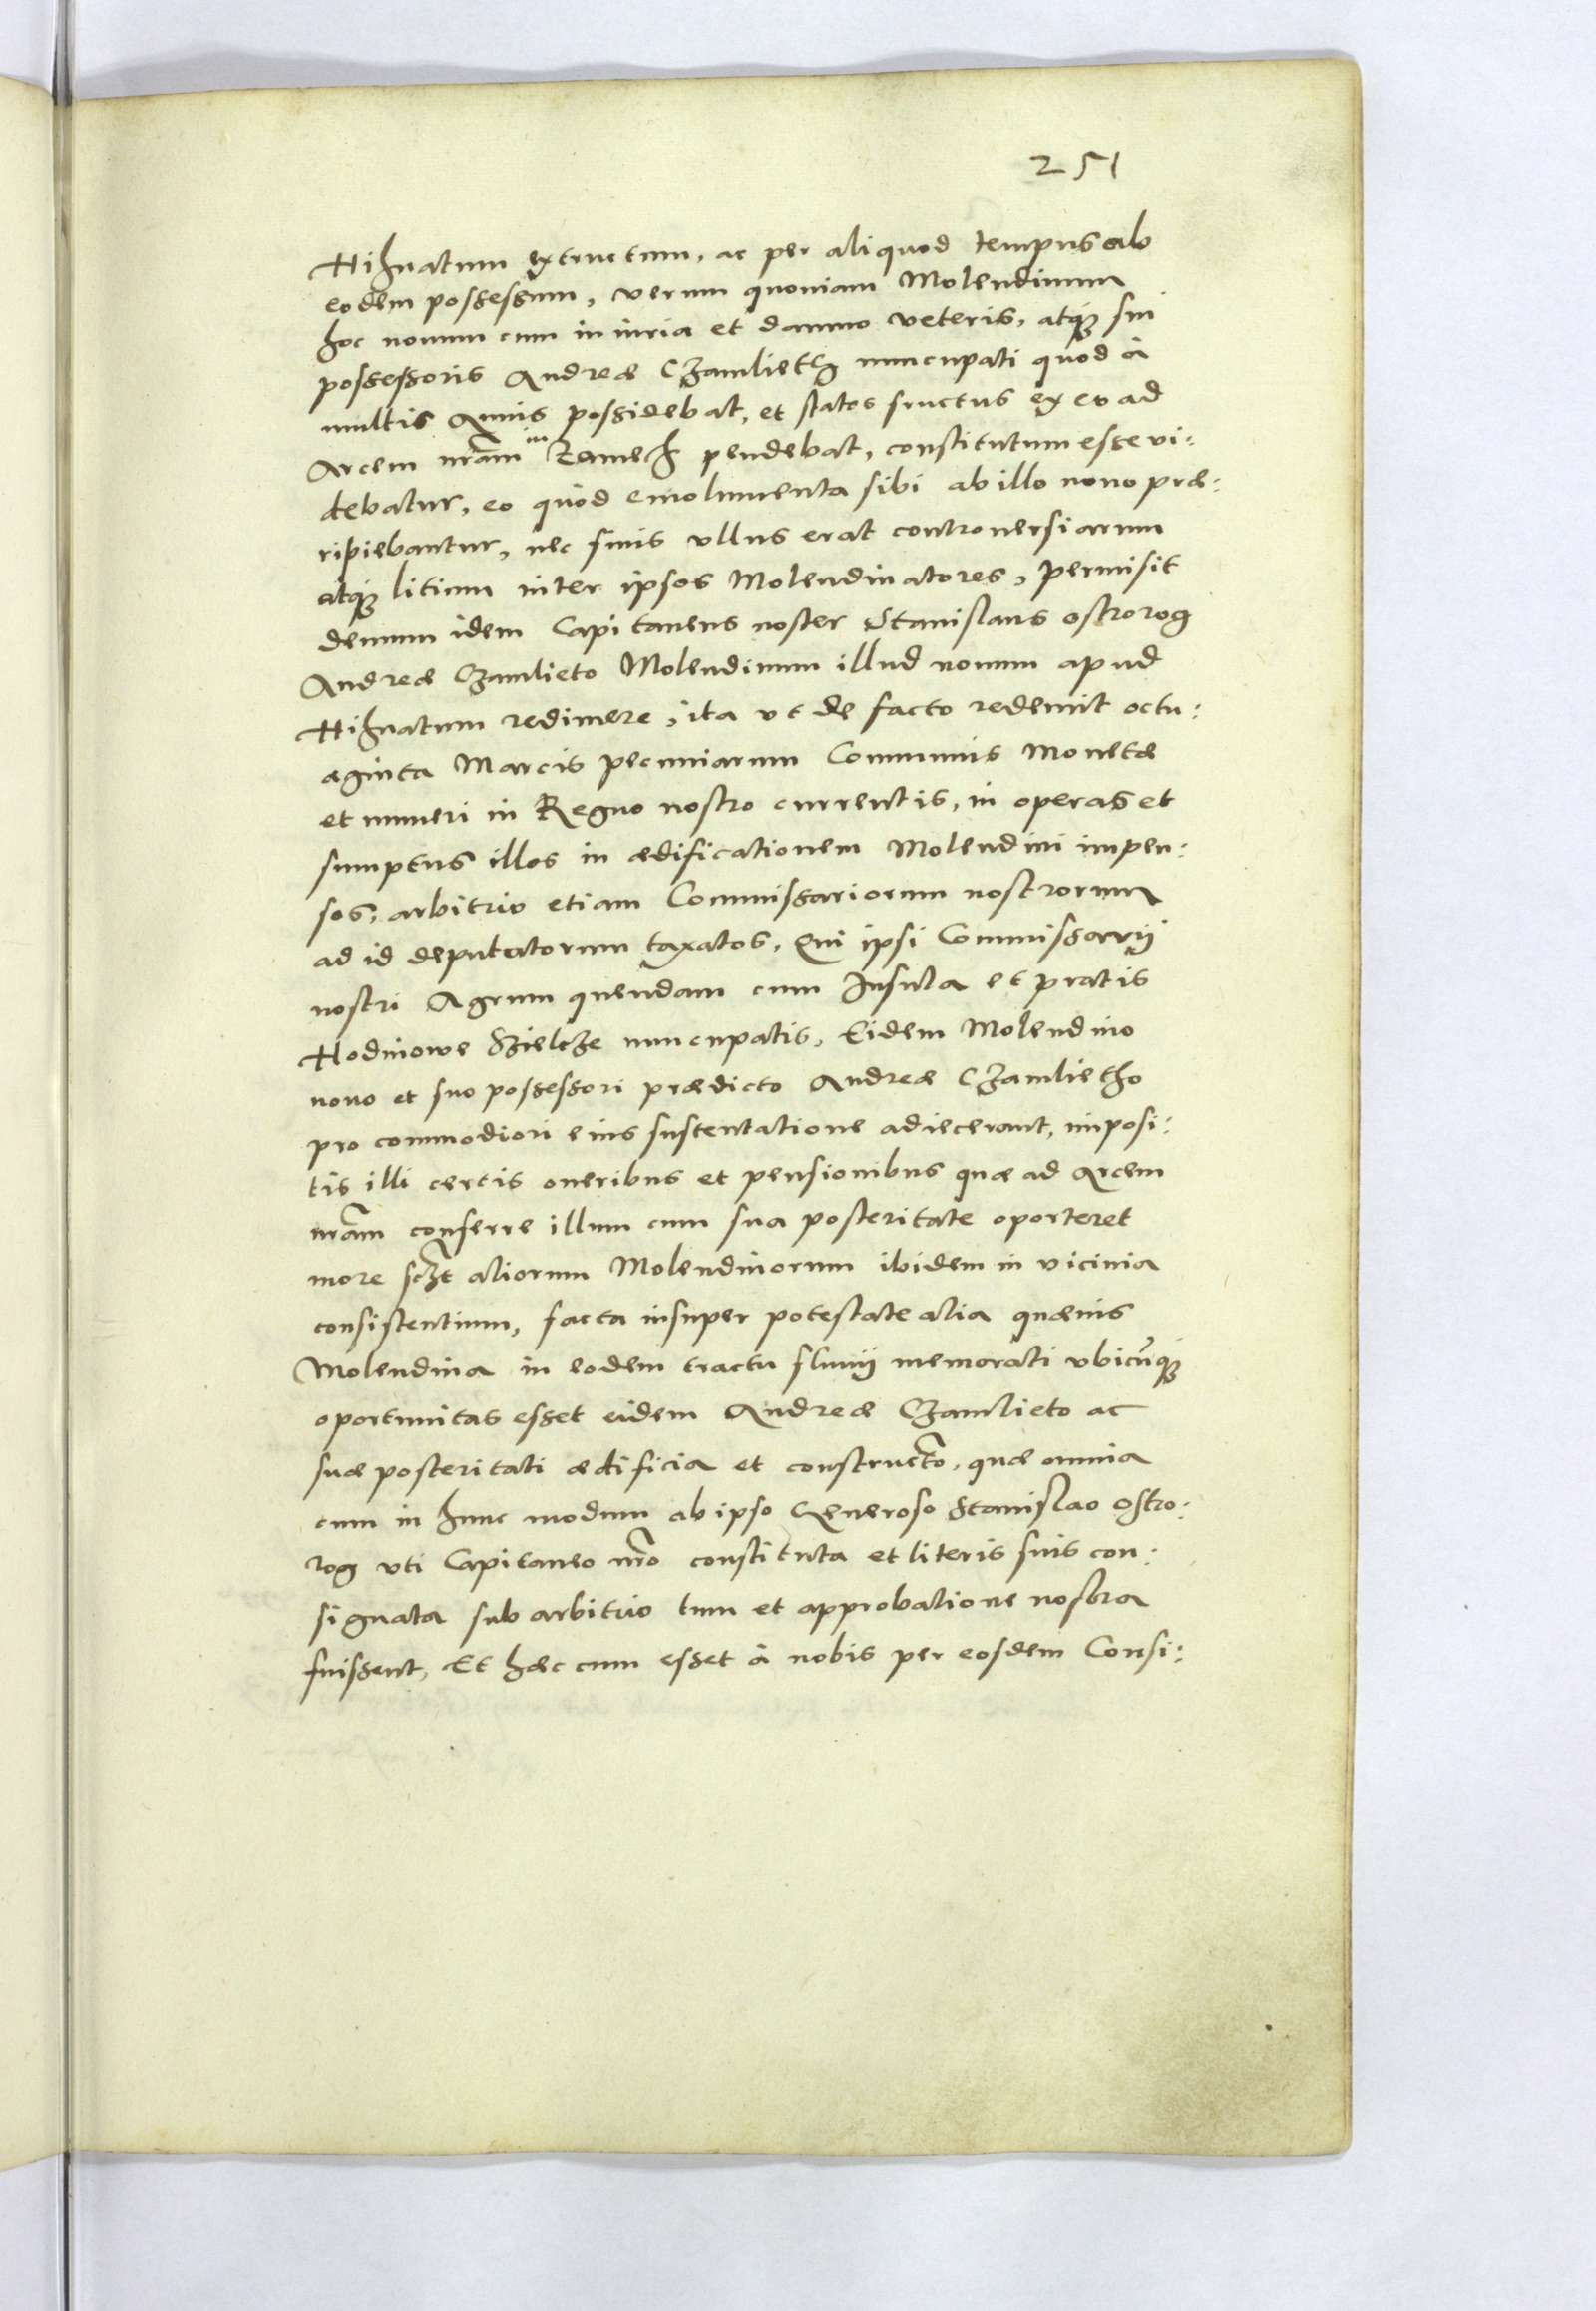 251
Hiznatum extructum, ac per aliquod tempus ab
eodem possessum, verum quoniam Molendinum
hoc nouum cum iniuria et damno veteris, atq; sui
possessoris Andreæ Czamlieth nuncupati quod à
multis Annis possidebat, et statos fructus ex eo ad
Arcem nr̃am in Zamech pendebat, constitutum esse vi:
debatur, eo quod emolumenta sibi ab illo nouo præ:
ripiebantur, nec finis vllus erat controuersiarum
atq; litium inter ipsos Molendinatores, permisit
demum idem Capitaneus noster Stanislaus ostrorog
Andreæ Czamlieto Molendinum illud nouum apud
Hiznatum redimere, ita vt de facto redemit octu:
aginta Marcis pecuniarum Communis Monetæ
et numeri in Regno nostro currentis, in operas et
sumptus illos in ædificationem Molendini impen:
sos, arbitrio etiam Commissariorum nostrorum
ad id deputatorum taxatos, Qui ipsi Commissarij
nostri Agrum quendam cum Insula et pratis
Hodinowe Szielcze nuncupatis, Eidem Molendino
nouo et suo possessori prædicto Andreæ Czamlietho
pro commodiori eius sustentatione adiecerant, imposi:
tis illi certis oneribus et pensionibus quæ ad Arcem
nr̃am conferre illum cum sua posteritate oporteret
more sczt̃ aliorum Molendinorum ibidem in vicinia
consistentium, facta insuper potestate alia quæuis
Molendina in eodem tractu fluuij memorati vbicũq;
oportunitas esset eidem Andreæ Czamlieto ac
suæ posteritati ædificia et constructo, quæ omnia
cum in hunc modum ab ipso Generoso Stanislao Ostro:
rog vti Capitaneo nr̃o constituta et literis suis con:
signata sub arbitrio tum et approbatione nostra
fuissent, Et hæc cum esset à nobis per eosdem Consi: